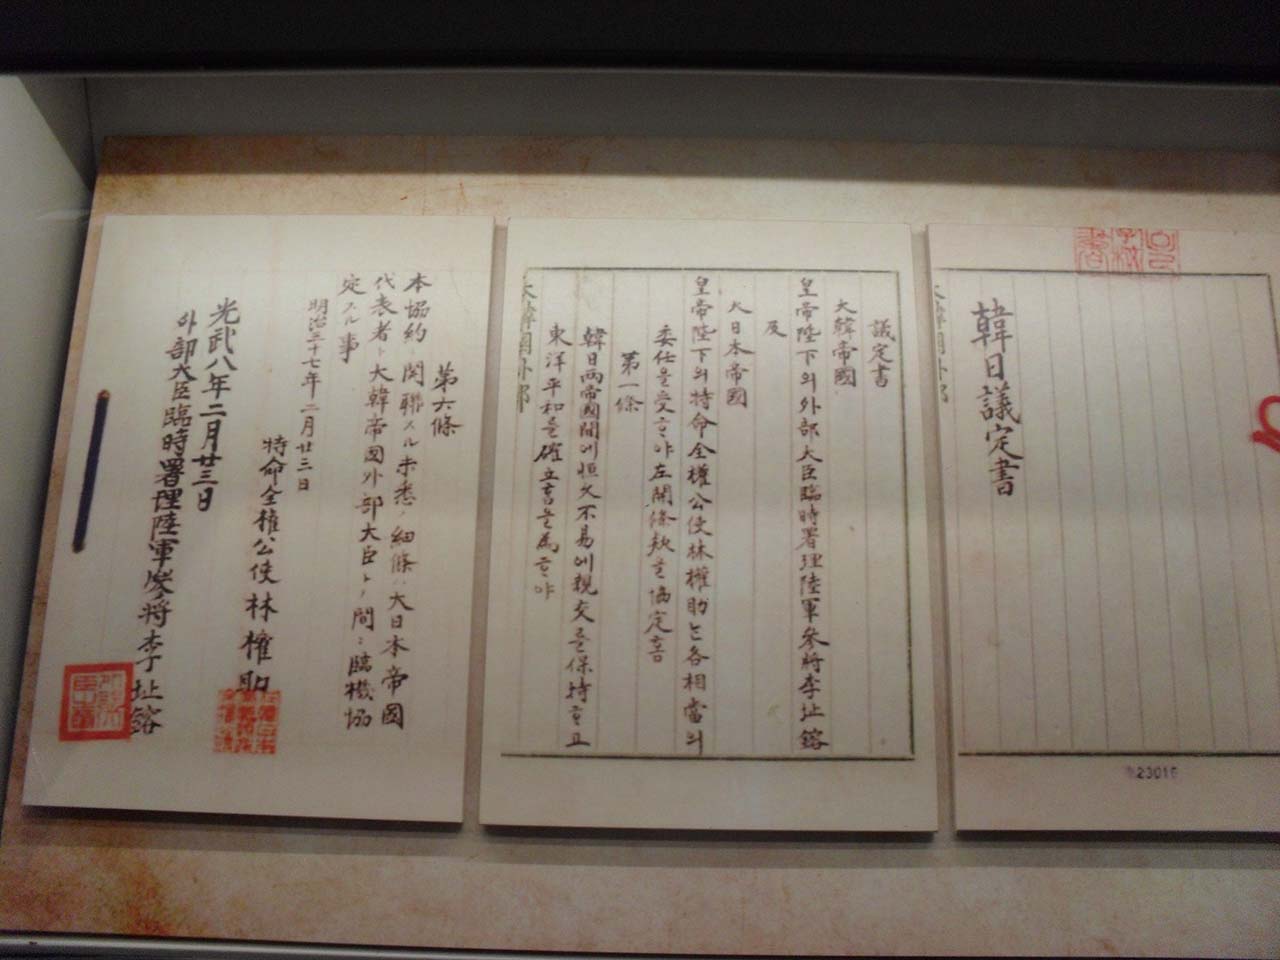 韓日議定書
23016
議定書
大韓帝國
皇帝陛下의外部大臣臨時署理陸軍參將李址鎔
及
大日本帝國
皇帝陛下의特命全權公使林權助는各相當의
委任을受하야左開條欵을協定홈
第一條
韓日兩帝國間에恒久不易에親交를保持하고
東洋平和를確立홈을爲하야
大韓國外部
第六條
本協約ニ関聯スル未悉ノ細條ハ大日本帝國
代表者ト大韓帝國外部大臣トノ間ニ臨機協
定スル事
明治三十七年二月廿三日
特命全權公使林權助
光武八年二月廿三日
外部大臣臨時署理陸軍參將李址鎔